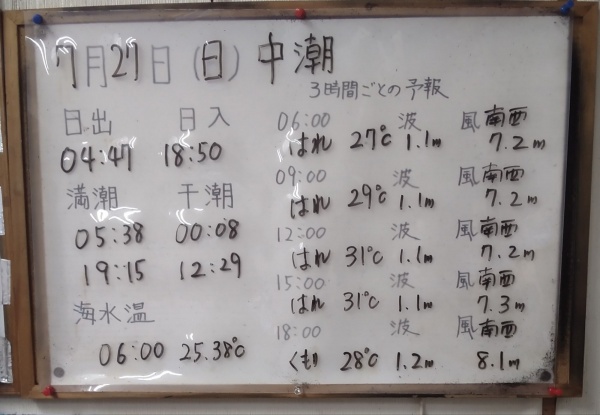 7月27日(日)中潮
3時間ごとの予報
日出 日入
04:47 18:50
満潮 干潮
05:38 00:08
19:15 12:29
海水温
06:00 25.38℃
06:00 波 風 南西
はれ 27℃ 1.1m 7.2m
09:00 波 風 南西
はれ 29℃ 1.1m 7.2m
12:00 波 風 南西
はれ 31℃ 1.1m 7.2m
15:00 波 風 南西
はれ 31℃ 1.1m 7.3m
18:00 波 風 南西
くもり 28℃ 1.2m 8.1m